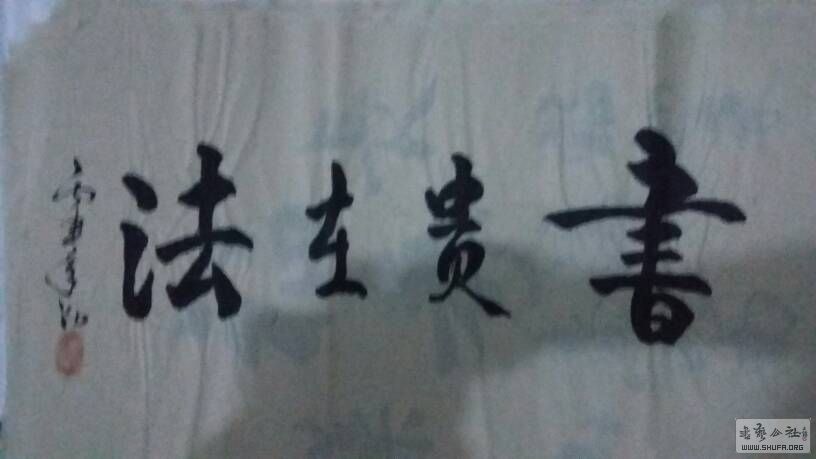 書貴在法
书艺公社
WWW.SHUFA.ORG